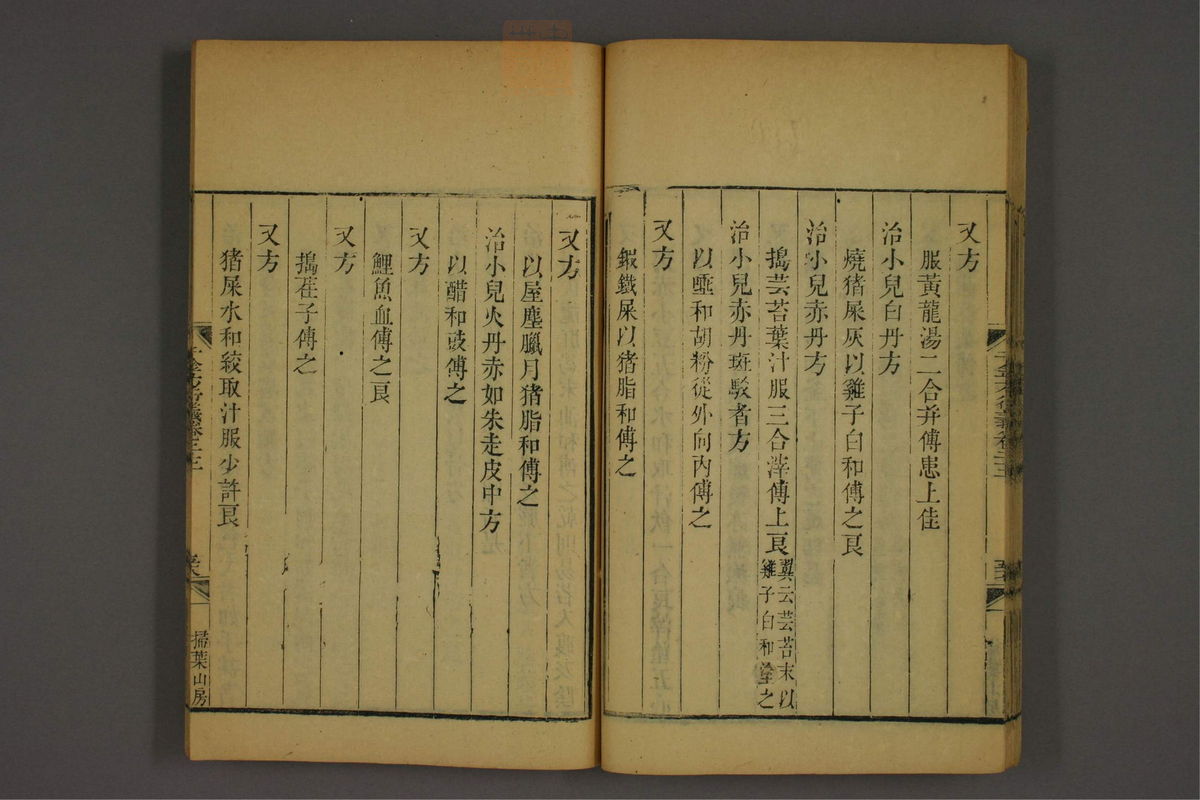 又方
服黃龍湯二合幷傅患上佳
治小兒白丹方
燒猪屎灰以雞子白和傅之良
治小兒赤丹方
搗芸苔葉汁服三合滓傅上良翼云芸苔末以
雞子白和塗之
治小兒赤丹斑駁者方
以唾和胡粉從外向内傅之
又方
鍜鐵屎以猪脂和傅之
又方
以屋塵臘月猪脂和傅之
治小兒火丹赤如朱走皮中方
以醋和豉傅之
又方
鯉魚血傅之良
又方
搗荏子傅之
又方
猪屎水和絞取汁服少許良
掃葉山房